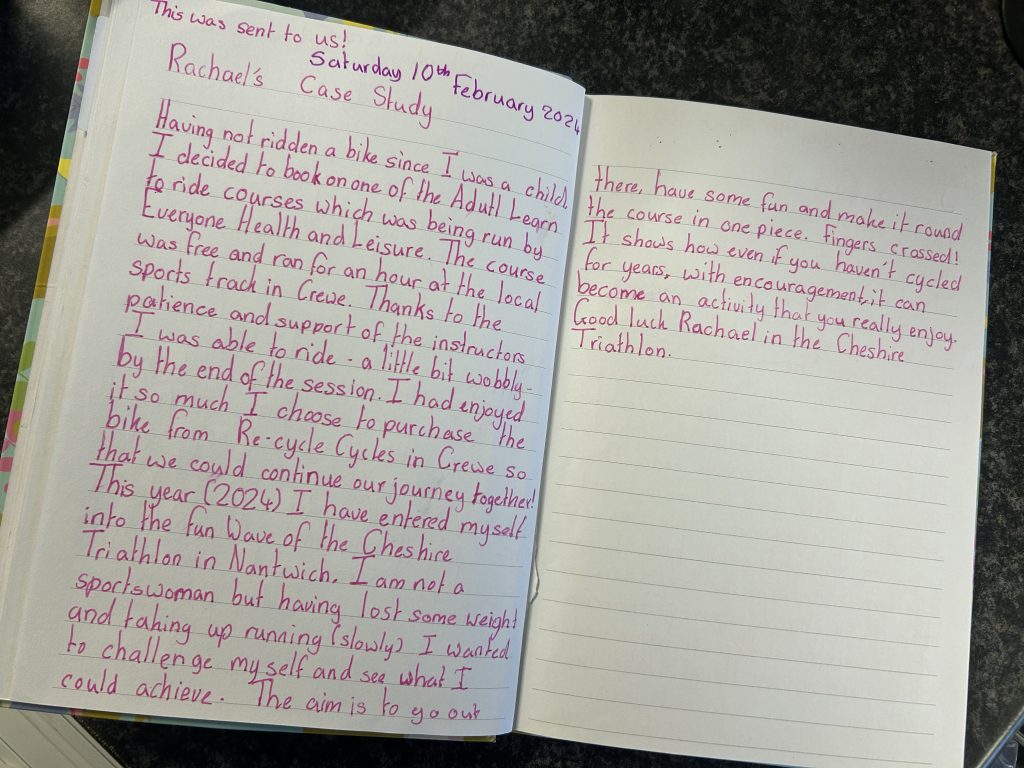 This was sent to us!
Saturday 10th February 2024
Rachael's Case Study
Having not ridden a bike since I was a child,
I decided to book on one of the Adutl Learn
to ride courses which was being run by
Everyone Health and Leisure. The course
was free and ran for an hour at the local
sports track in Crewe. Thanks to the
patience and support of the instructors
I was able to ride - a little bit wobbly -
by the end of the session. I had enjoyed
it so much I choose to purchase the
bike from Re-cycle Cycles in Crewe so
that we could continue our journey together!
This year (2024) I have entered myself
into the fun Wave of the Cheshire
Triathlon in Nantwich. I am not a
sportswoman but having lost some weight
and taking up running (slowly) I wanted
to challenge myself and see what I
could achieve. The aim is to go out
there, have some fun and make it round
the course in one piece. Fingers crossed!
It shows how even if you haven't cycled
for years, with encouragement, it can
become an activity that you really enjoy.
Good luck Rachael in the Cheshire
Triathlon.